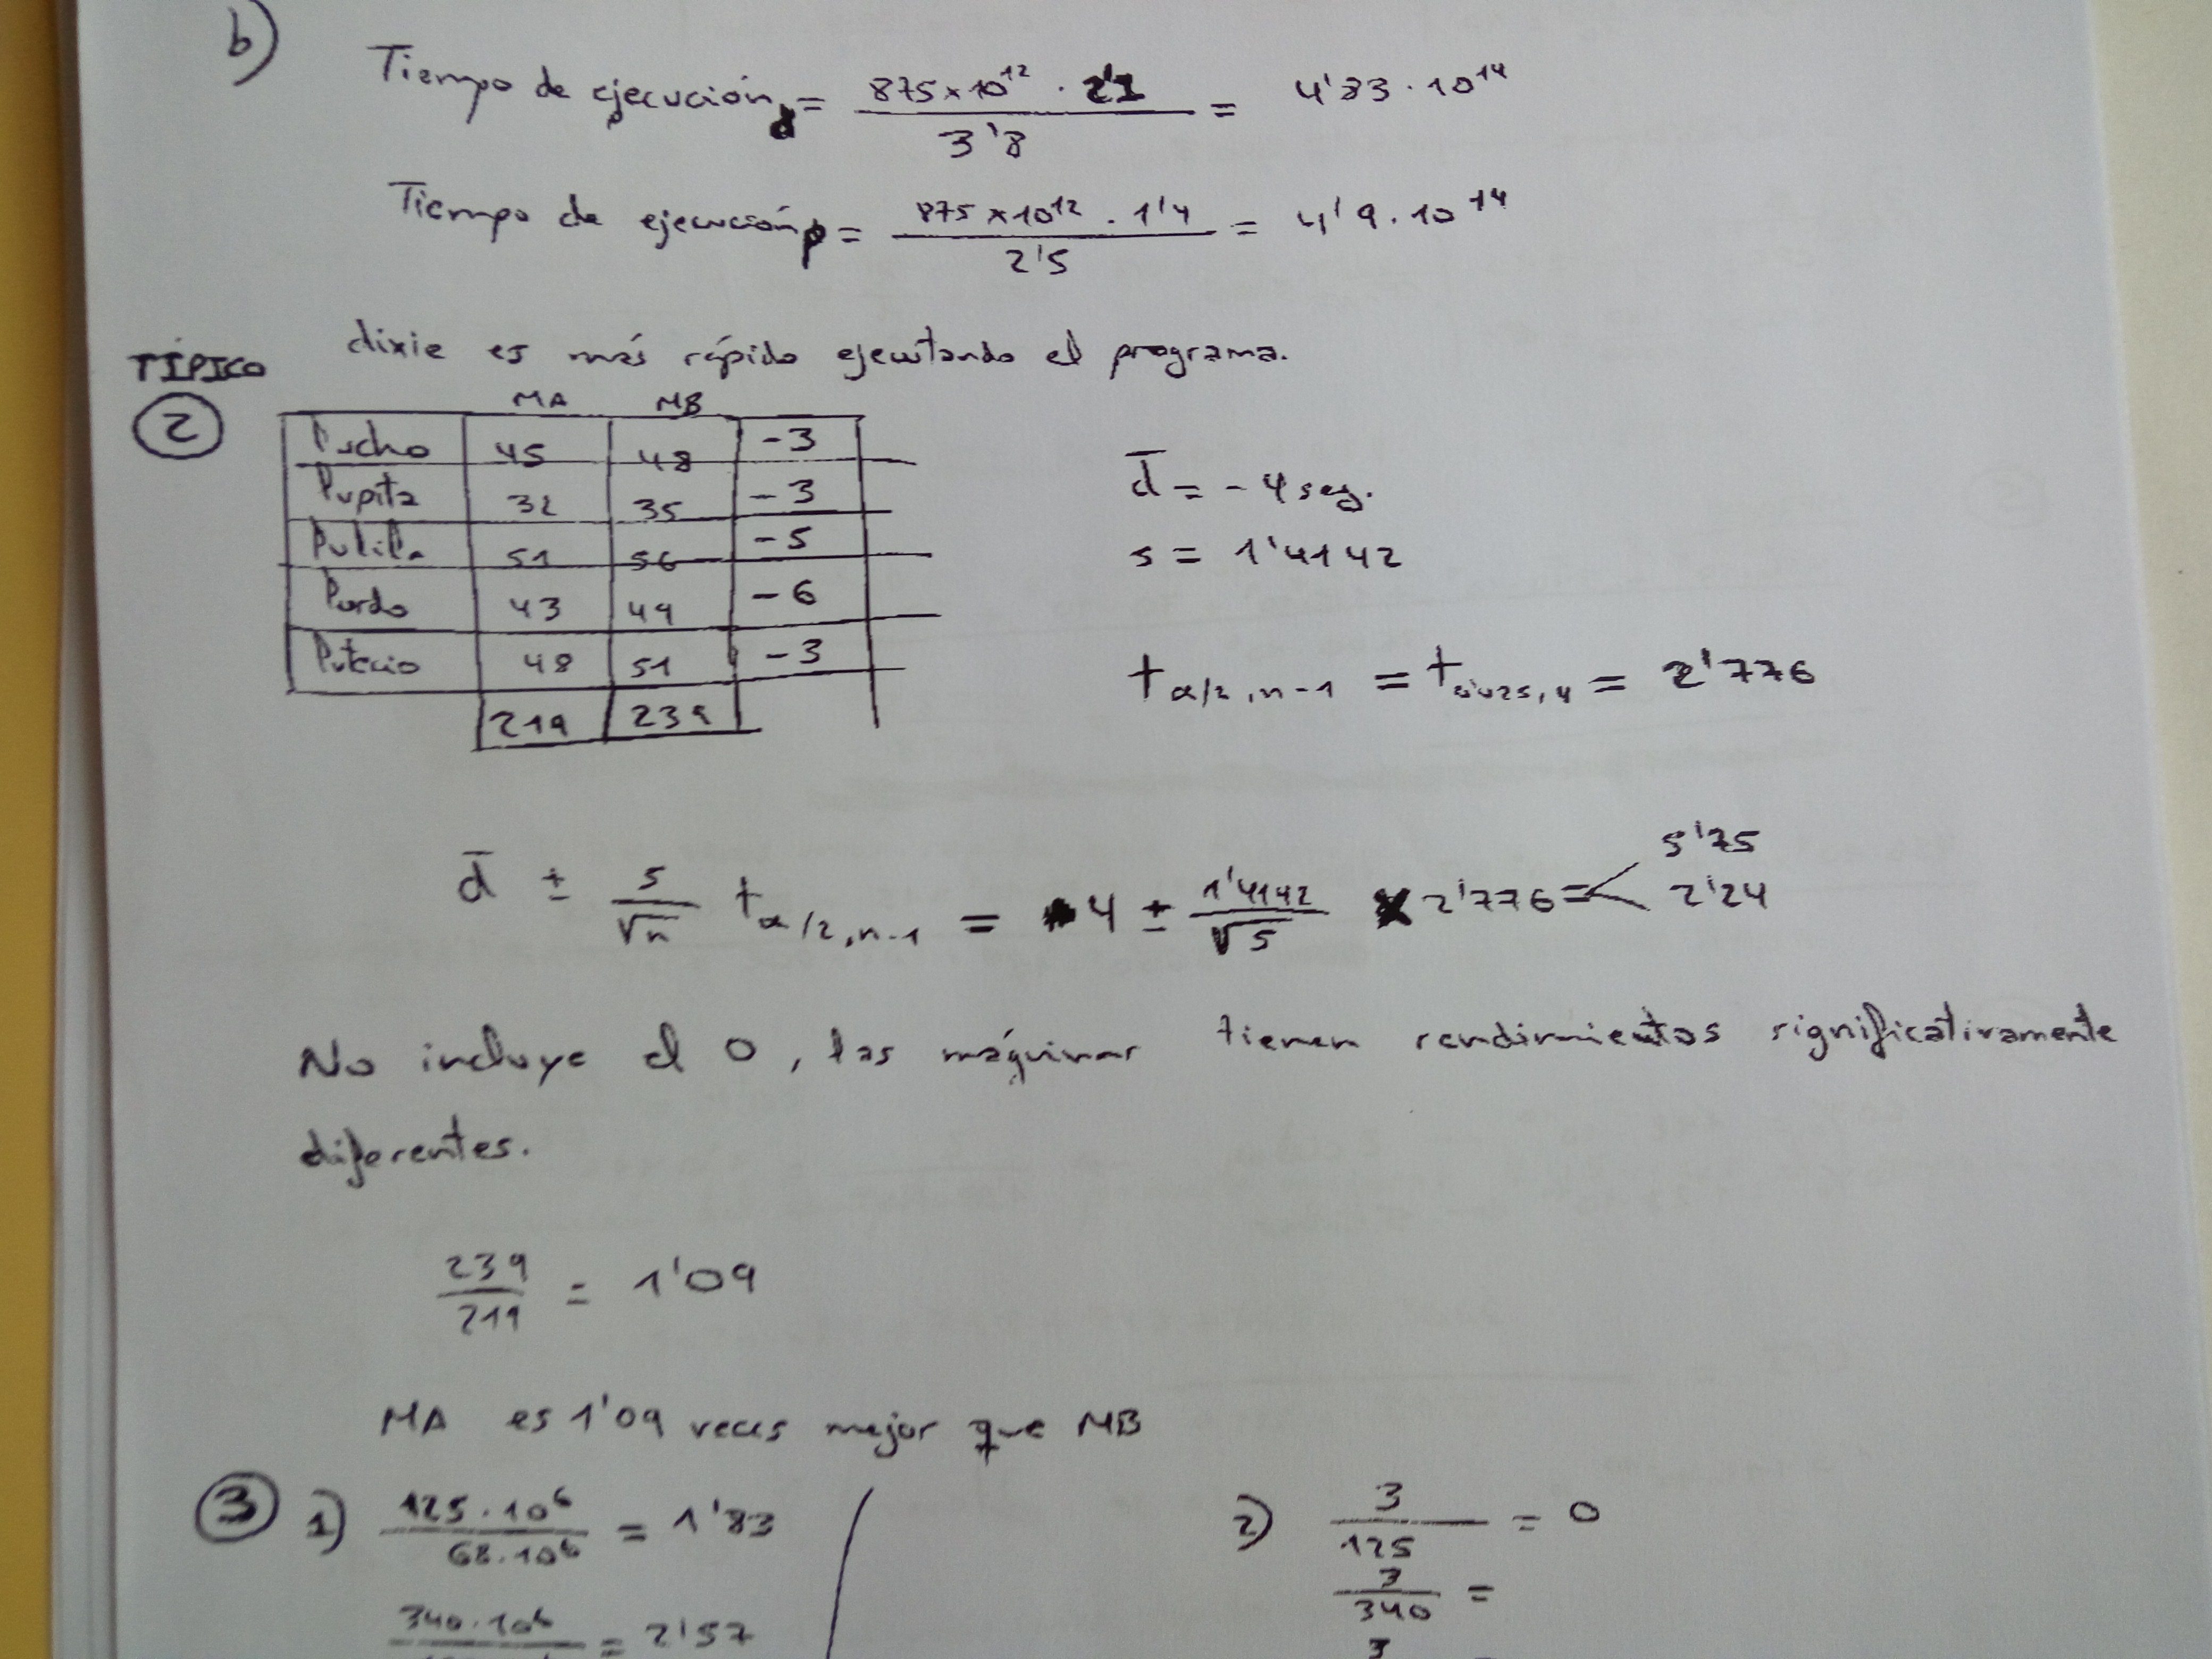 b)
Tiempo de ejecución d = 875×10^12 · 2'1 / 3'8 = 4'83 · 10^14
Tiempo de ejecución p = 875×10^12 · 1'4 / 2'5 = 4'9 · 10^14
dixie es más rápido ejecutando el programa.
TÍPICO
2
MA MB
Pucho 45 48 -3
Pupita 32 35 -3
Pulila 51 56 -5
Purdo 43 49 -6
Putecio 48 51 -3
219 239
d̅ = -4 seg.
s = 1'4142
t α/2, n-1 = t 0'025, 4 = 2'776
d̅ ± s/√n t α/2, n-1 = 4 ± 1'4142/√5 × 2'776 = < 5'75
2'24
No incluye el 0, las máquinas tienen rendimientos significativamente
diferentes.
239/219 = 1'09
MA es 1'09 veces mejor que MB
3 1) 125·10^6 / 68·10^6 = 1'83
340·10^6 = 2'57
2) 3/125 = 0
3/340 =
3